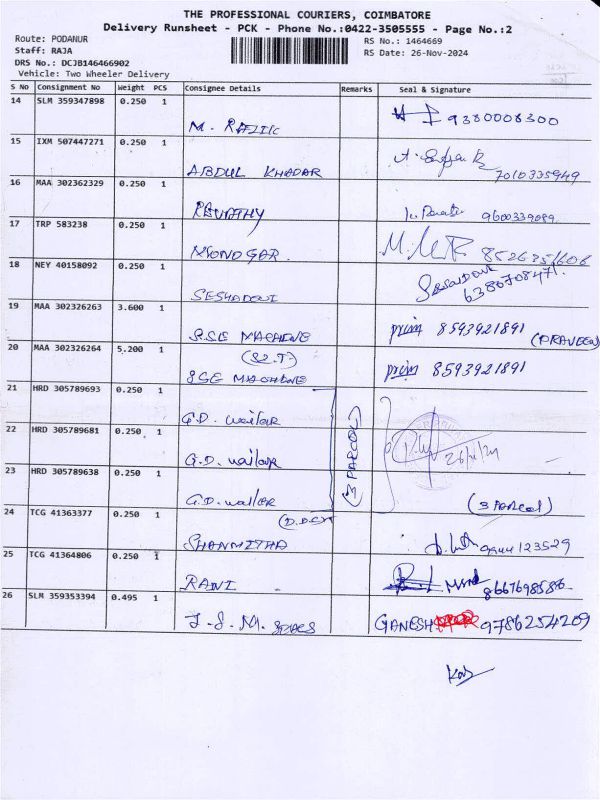 THE PROFESSIONAL COURIERS, COIMBATORE
Delivery Runsheet - PCK - Phone No.:0422-3505555 - Page No.:2
Route: PODANUR
RS No.: 1464669
Staff: RAJA
RS Date: 26-Nov-2024
DRS No.: DCJB146466902
Vehicle: Two Wheeler Delivery
S No Consignment No Weight PCS Consignee Details Remarks Seal & Signature
14 SLM 359347898 0.250 1
M. RAFIIC 9380008300
15 IXM 507447271 0.250 1
ABDUL KHADAR 7010335949
16 MAA 302362329 0.250 1
REVATHY 9600339089
17 TRP 583238 0.250 1
MONOGAR
18 NEY 40158092 0.250 1
SESHADEVI 6380708471.
19 MAA 302326263 3.600 1
S.S.E MACHINE prim 8593921891 (PRAVEEN)
20 MAA 302326264 5.200 1
(S2.T)
SSE MACHINE prim 8593921891
21 HRD 305789693 0.250 1
G.D. wailar
22 HRD 305789681 0.250 1
G.D. wailar (3 PARCOL) 26/11/24
23 HRD 305789638 0.250 1
G.D. waller (3 Parcel)
24 TCG 41363377 0.250 1
SHANMITHA 9944123529
25 TCG 41364806 0.250 1
RANI 8667698586
26 SLM 359353394 0.495 1
J.S.M. GANESH 9786254209